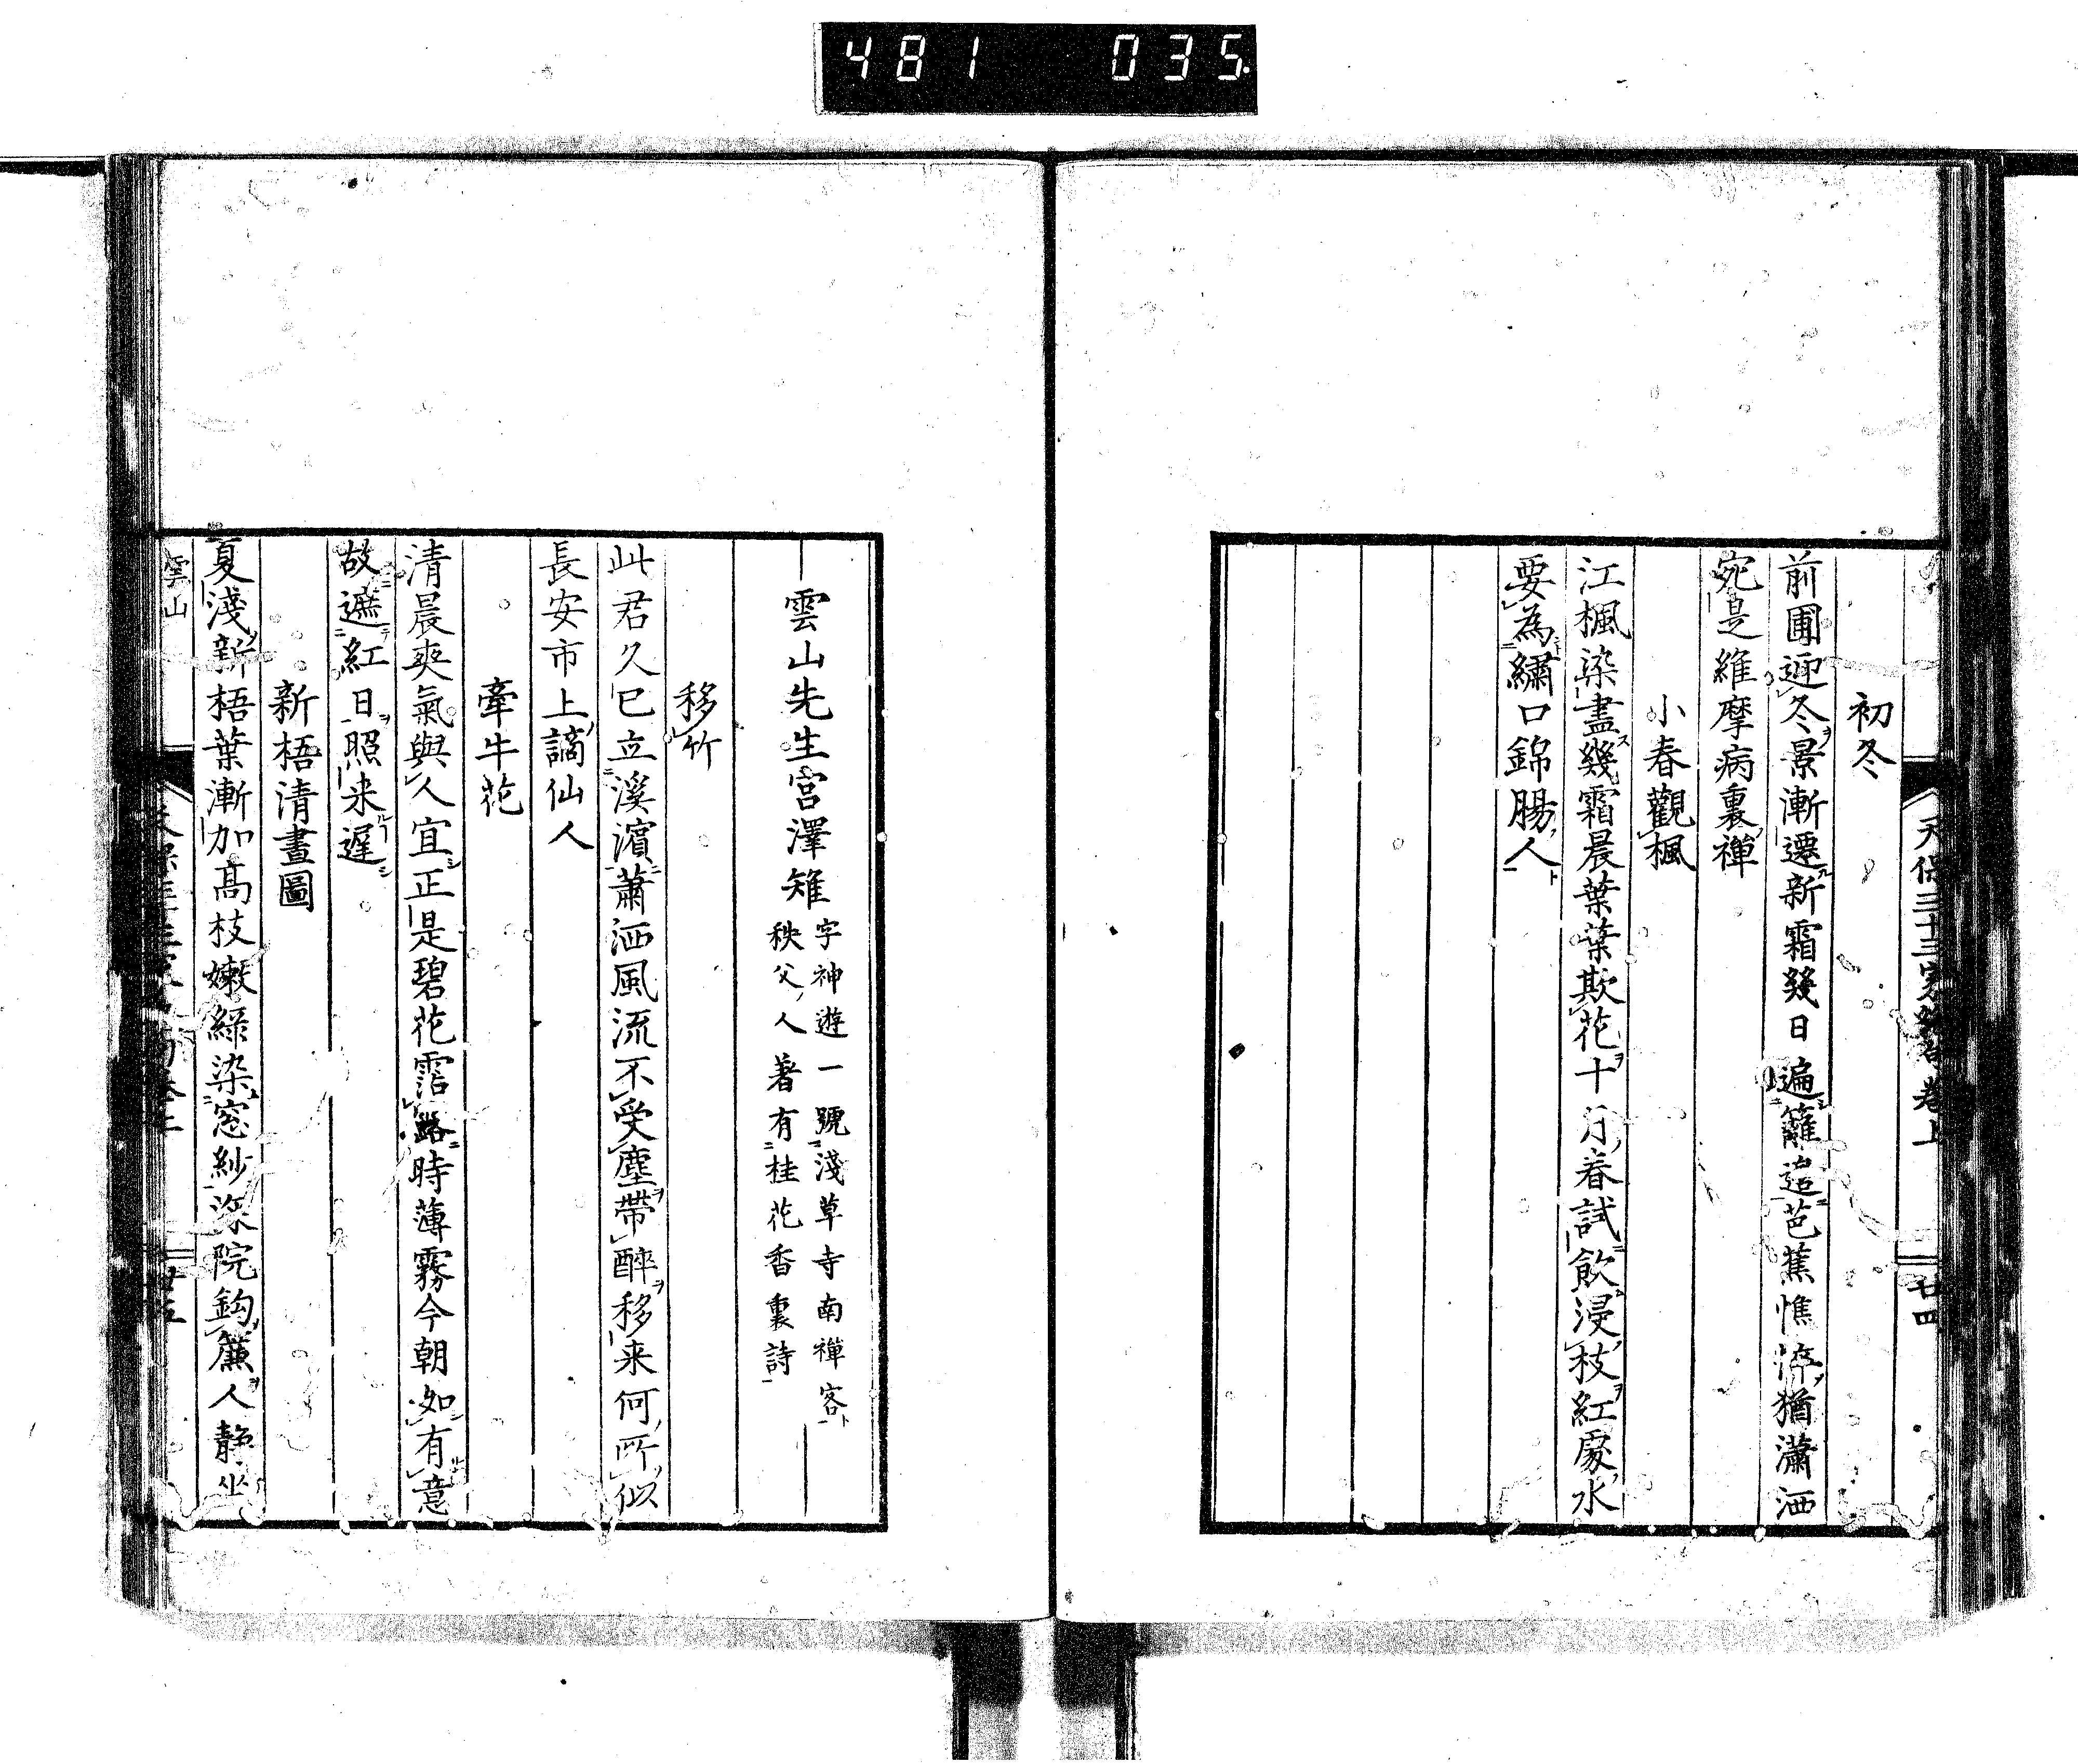 481 035
天保三十三家絶句卷上 廿四
初冬
前圃迎冬景漸遷新霜幾日遍籬邊芭蕉憔悴猶瀟洒
宛是維摩病裏禪
小春觀楓
江楓染盡幾霜晨葉葉欺花十月春試飲浸枝紅處水
要為繡口錦腸人
雲山先生宮澤雉
字神遊一號淺草寺南禪客
秩父人著有桂花香裏詩
移竹
此君久已立溪濱蕭洒風流不受塵帶醉移来何所似
長安市上謫仙人
牽牛花
清晨爽氣與人宜正是碧花霑露時薄霧今朝如有意
故遮紅日照来遲
新梧清晝圖
夏淺新梧葉漸加高枝嫩綠染窓紗深院鈎簾人静坐
雲山
廿五